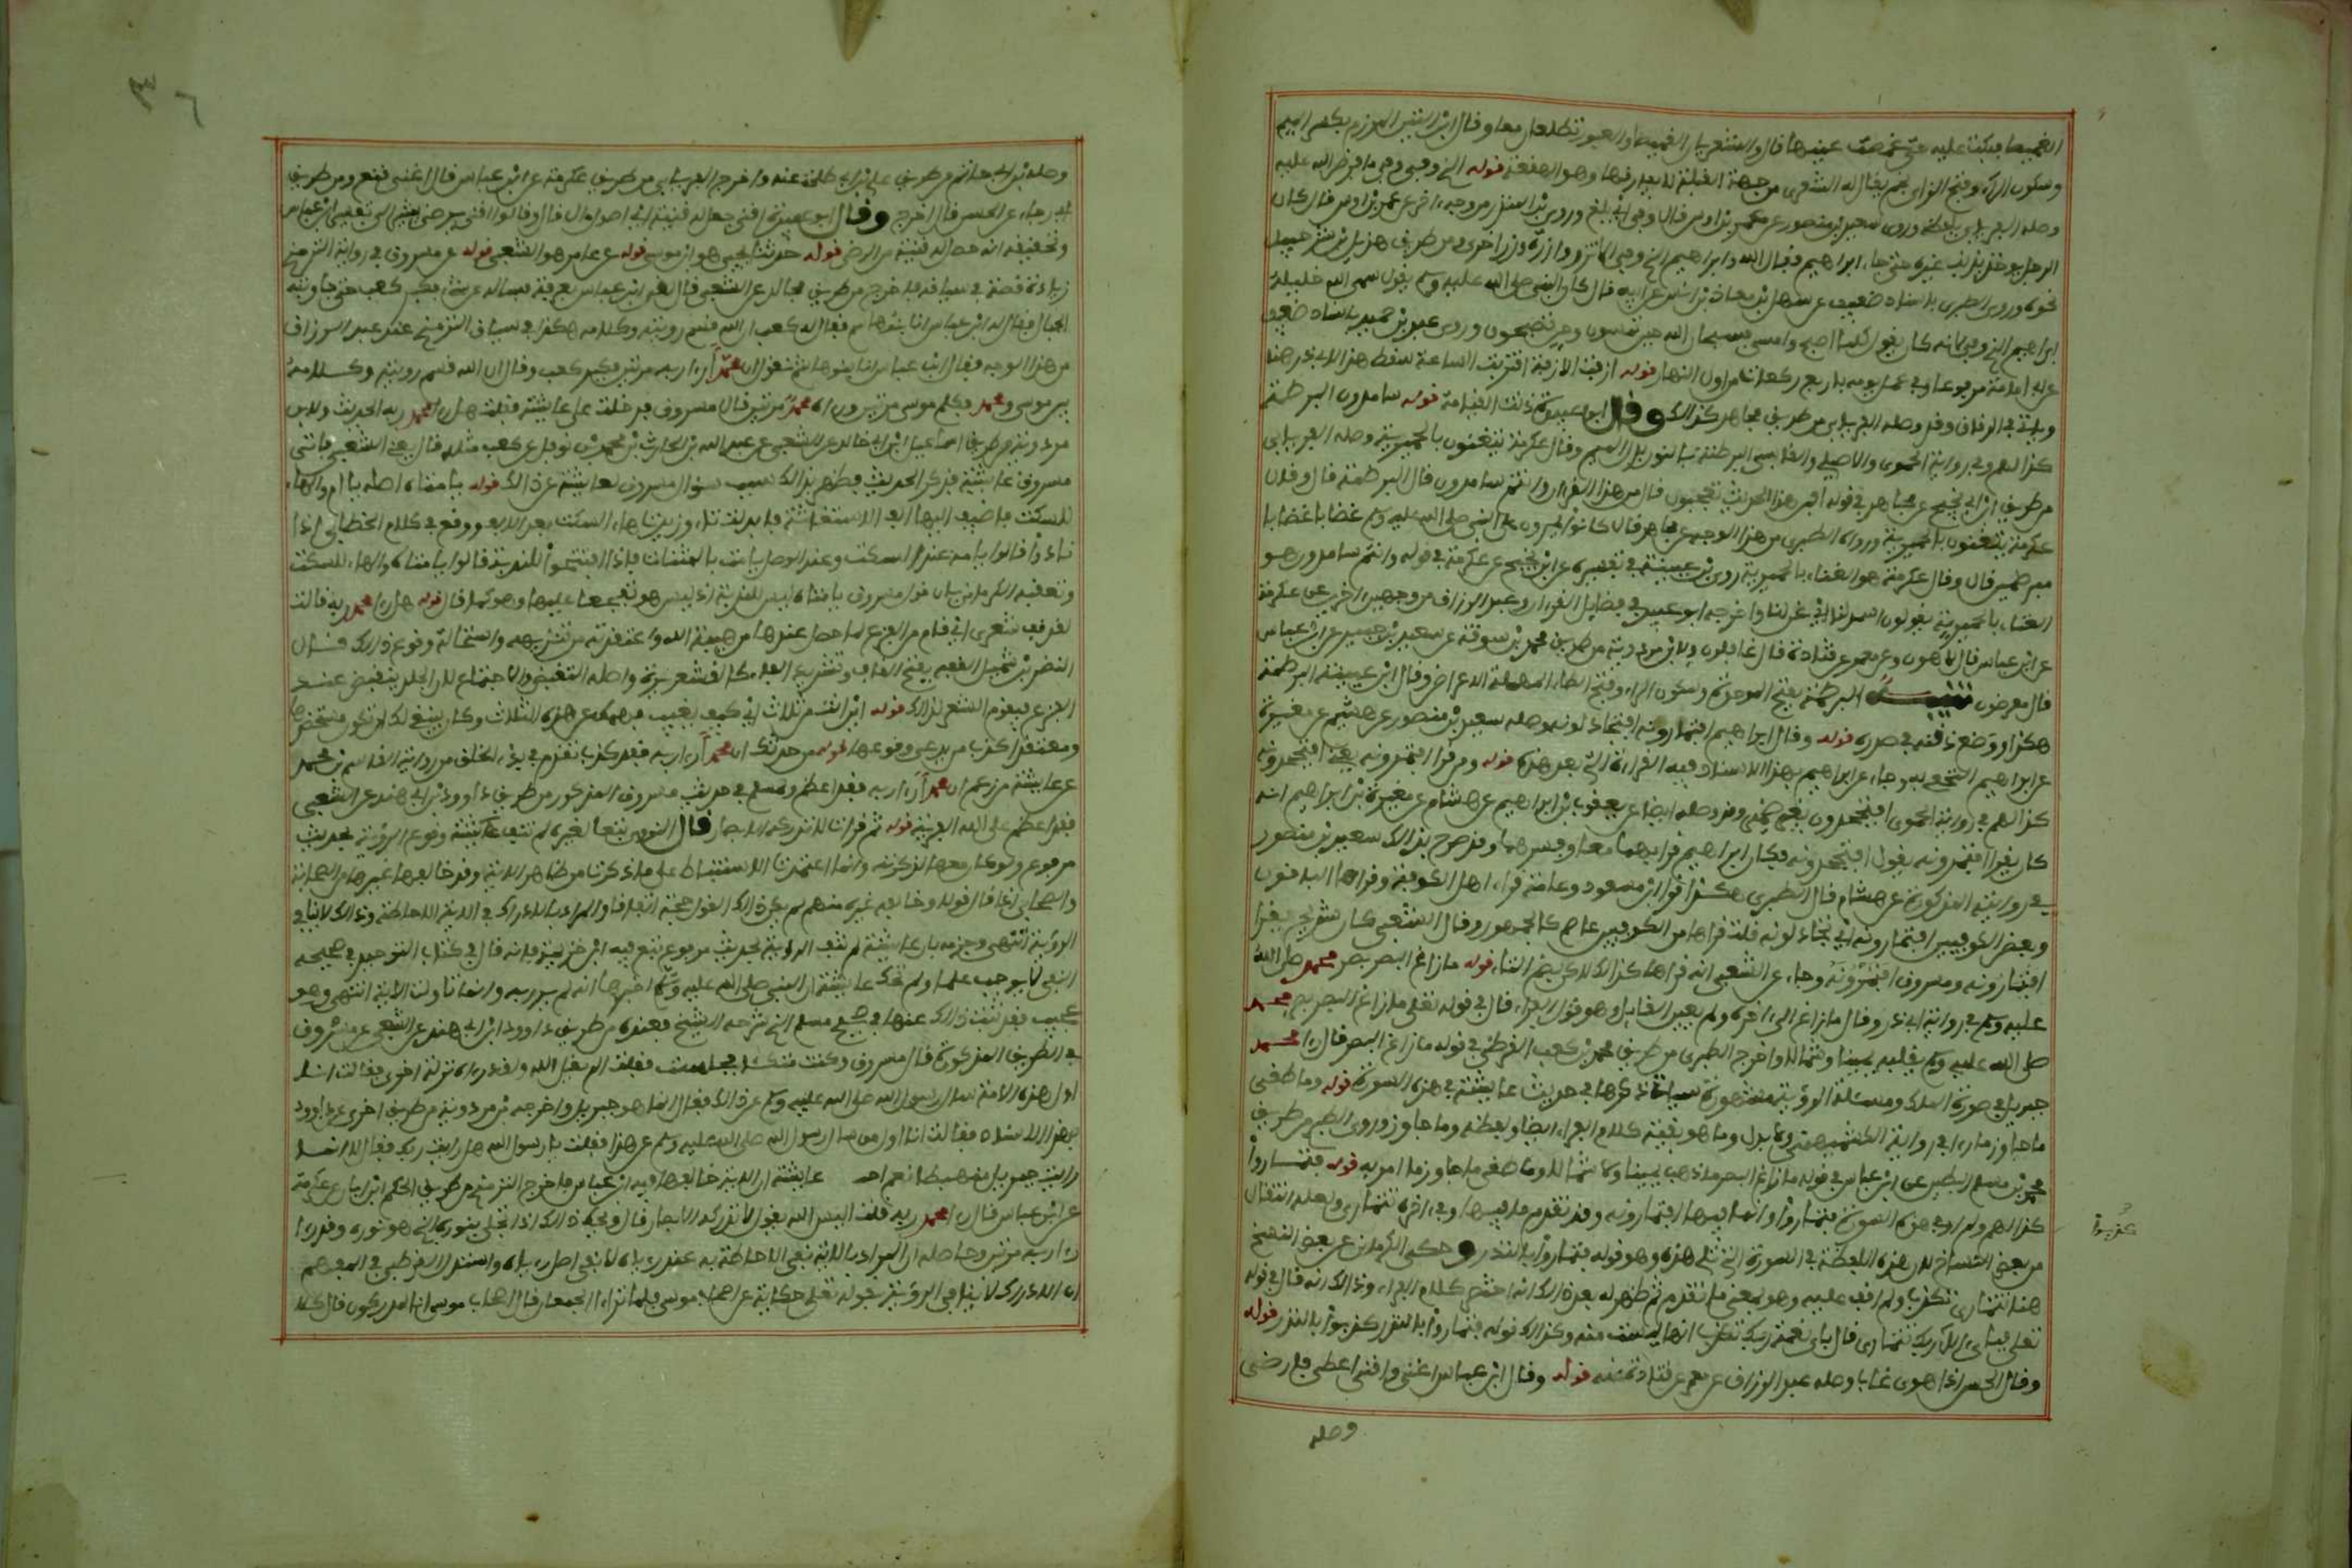 الغميصاء فبكت عليه حتى غمصت عينها قال والشعريان الغميصاء والعبور تطلعان معا وقال ابن التين المرزم بكسر الميم
وسكون الراء وفتح الزاي نجم يقال له الشعرى من جهة القبلة لا يعارفها وهو الهقعة قوله الذي وفى وفى ما فرض الله عليه
وصله الفريابي بلفظه وروى سعيد بن منصور عن عمرو بن اوس قال وفى اي بلغ وروى ابن المنذر من وجه اخر عن عمرو بن اوس قال كان
الرجل يؤخذ بذنب غيره حتى جاء ابراهيم فقال الله وابراهيم الذي وفى الا تزر وازرة وزر اخرى ومن طريق هذيل بن شرحبيل
نحوه وروى الطبري باسناد ضعيف عن سهل بن معاذ بن انس عن ابيه قال كان النبي صلى الله عليه وسلم يقول سمى الله خليله
ابراهيم الذي وفى لانه كان يقول كلما اصبح وامسى فسبحان الله حين تمسون وحين تصبحون وروى عبد بن حميد باسناد ضعيف
عن ابي امامة مرفوعا وفى عمل يومه باربع ركعات من اول النهار قوله ازفت الازفة اقتربت الساعة سقط هذا لابي ذر هنا
وياتي في الرقاق وقد وصله الفريابي من طريق مجاهد كذلك وقال ابو عبيدة دنت القيامة قوله سامدون البرطمة
كذا لهم وفي رواية الحموي والاصيلي والقابسي البرطنة بالنون بدل الميم وقال عكرمة يتغنون بالحميرية وصله الفريابي
من طريق ابن ابي نجيح عن مجاهد في قوله افمن هذا الحديث تعجبون قال من هذا القرءان وانتم سامدون قال البرطمة قال وقال
عكرمة يتغنون بالحميرية ورواه الطبري من هذا الوجه عن مجاهد قال كانوا يمرون على النبي صلى الله عليه وسلم غضابا
مبرطمين قال وقال عكرمة هو الغناء بالحميرية وروى ابن عيينة في تفسيره عن ابن ابي نجيح عن عكرمة في قوله وانتم سامدون هو
الغناء بالحميرية يقولون اسمد لنا اي غن لنا واخرجه ابو عبيد في فضايل القرءان وعبد الرزاق من وجهين اخرين عن عكرمة
عن ابن عباس قال لاهون وعن معمر عن قتادة قال غافلون ولابن مردوية من طريق محمد بن سوقة عن سعيد بن جبير عن ابن عباس
قال معرضون تنبيه البرطمة بفتح الموحدة وسكون الراء وفتح الطاء المهملة الاعراض وقال ابن عيينة البرطمة
هكذا ووضع ذقنه في صدره قوله وقال ابراهيم افتمارونه افتجادلونه وصله سعيد بن منصور عن هشيم عن مغيرة
عن ابراهيم النخعي به وجاء عن ابراهيم بهذا الاسناد فيه القراءة التي بعد هذه قوله ومن قرا افتمرونه يعني افتجحدونه
كذا لهم في رواية الحموي افتجحدون بغير ضمير وقد وصله ايضا عن يعقوب بن ابراهيم عن هشام عن مغيرة عن ابراهيم انه
كان يقرا افتمرونه يقول افتجحدونه فكان ابراهيم قرا بهما معا وفسرهما وقد صرح بذلك سعيد بن منصور
في روايته المذكورة عن هشام قال الطبري هكذا قرا ابن مسعود وعامة قراء اهل الكوفة وقراها الباقون
وبعض الكوفيين افتمارونه اي تجادلونه قلت قراها من الكوفيين عاصم كالجمهور وقال الشعبي كان شريح يقرا
افتمارونه ومسروق افتمرونه وجاء عن الشعبي انه قراها كذلك لكن بضم التاء قوله ما زاغ البصر بصر محمد صلى الله
عليه وسلم في رواية ابي ذر وقال ما زاغ الى اخره ولم يعين القايل وهو قول الفراء قال في قوله تعلى ما زاغ البصر بصر محمد
صلى الله عليه وسلم يقلبه يمينا وشمالا واخرج الطبري من طريق محمد بن كعب القرظي في قوله ما زاغ البصر قال راى محمد
جبريل في صورة الملك ومسئلة الرؤية مشهورة سياتي ذكرها في حديث عايشة في هذه السورة قوله وما طغى
ما جاوز ما راى في رواية الكشميهني ولا بدل وما هو بقية كلام الفراء ايضا ولفظه وما جاوز وروى الطبري من طريق
محمد بن مسلم البطين عن ابن عباس في قوله ما زاغ البصر ما ذهب يمينا ولا شمالا وما طغى ما جاوز ما امر به قوله فتماروا
كذا لهم ولم ار في هذه السورة فتماروا وانما فيها افتمارونه وقد تقدم ما فيها وفي اخرها تتمارى ولعله انتقال
من بعض النساخ لان هذه اللفظة في السورة التي تلي هذه وهو قوله فتماروا بالنذر وحكى الكرماني عن بعض النسخ
هنا تتمارى تكذب ولم اقف عليه وهو بمعنى ما تقدم ثم ظهر له بعد ذلك انه اختصر كلام الفراء وذلك انه قال في قوله
تعلى فباي الاء ربك تتمارى قال باي نعمة ربك تكذب انها ليست منه وكذلك قوله فتماروا بالنذر كذبوا بالنذر قوله
وقال الحسن اذا هوى غاب وصله عبد الرزاق عن معمر عن قتادة عنه قوله وقال ابن عباس اغنى واقنى اعطى فارضى
وصله
وصله ابن ابي حاتم من طريق علي بن ابي طلحة عنه واخرج الفريابي من طريق عكرمة عن ابن عباس قال اغنى قنع ومن طريق
ابي رجاء عن الحسن قال اخرج وقال ابو عبيدة اقنى جعل له قنية اي اصول مال قال وقالوا اقنى يرضى يشير الى تفسير ابن عباس
وتحقيقه انه حصل له قنية من الرضى قوله حدثنا يحيى هو ابن موسى قوله عن عامر هو الشعبي قوله عن مسروق في رواية الترمذي
زيادة قصة في سياقه فاخرج من طريق مجالد عن الشعبي قال لقي ابن عباس كعبا بعرفة فساله عن شيء فكبر كعب حتى جاوبته
الجبال فقال له ابن عباس انا بنو هاشم فقال له كعب ان الله قسم رويته وكلامه هكذا في سياق الترمذي وعند عبد الرزاق
من هذا الوجه فقال ابن عباس انا بنو هاشم نقول ان محمدا راى ربه مرتين فكبر كعب وقال ان الله قسم رويته وكلامه
بين موسى ومحمد فكلم موسى مرتين وراه محمد مرتين قال مسروق فدخلت على عايشة فقلت هل راى محمد ربه الحديث ولابن
مردوية من طريق اسماعيل بن ابي خالد عن الشعبي عن عبد الله بن الحارث بن نوفل عن كعب مثله قال يعني الشعبي فاتى
مسروق عايشة فذكر الحديث فظهر بذلك سبب سؤال مسروق لعايشة عن ذلك قوله يا امتاه اصله يا ام والهاء
للسكت فاضيف اليها الف الاستغاثة فابدلت تاء وزيدت هاء السكت بعد الالف ووقع في كلام الخطابي اذا
نادوا قالوا يا امه عند السكت وعند الوصل يا امت بالمثناة فاذا افتتحوا للندبة قالوا يا امتاه والهاء للسكت
وتعقبه الكرماني بان قول مسروق يا امتاه ليس للندبة اذ ليس هو تفجعا عليها وهو كما قال قوله هل راى محمد ربه قالت
لقد قف شعري اي قام من الفزع لما حصل عندها من هيبة الله واعتقدته من تنزيهه واستحالة وقوع ذلك قال
النضر بن شميل القف بفتح القاف وتشديد الفاء كالقشعريرة واصله التقبض والاجتماع لان الجلد ينقبض عند
الفزع فيقوم الشعر لذلك قوله اين انت من ثلاث اي كيف يغيب فهمك عن هذه الثلاث وكان ينبغي لك ان تكون مستحضرها
ومعتقدا كذب من يدعي وقوعها قوله من حدثك ان محمدا راى ربه فقد كذب تقدم في بدء الخلق من رواية القاسم بن محمد
عن عايشة من زعم ان محمدا راى ربه فقد اعظم ولمسلم في حديث مسروق المذكور من طريق داوود بن ابي هند عن الشعبي
فقد اعظم على الله الفرية قوله ثم قرات لا تدركه الابصار قال النووي تبعا لغيره لم تنف عايشة وقوع الرؤية بحديث
مرفوع ولو كان معها لذكرته وانما اعتمدت الاستنباط على ما ذكرت من ظاهر الاية وقد خالفها غيرها من الصحابة
والصحابي اذا قال قولا وخالفه غيره منهم لم يكن ذلك القول حجة اتفاقا والمراد بالادراك في الاية الاحاطة وذلك لا ينافي
الرؤية انتهى وجزمه بان عايشة لم تنف الرؤية بحديث مرفوع تبع فيه ابن خزيمة فانه قال في كتاب التوحيد في صحيحه
النفي لا يوجب علما ولم تحك عايشة ان النبي صلى الله عليه وسلم اخبرها انه لم ير ربه وانما تاولت الاية انتهى وهو
عجيب فقد ثبت ذلك عنها في صحيح مسلم الذي شرحه الشيخ فعنده من طريق داوود بن ابي هند عن الشعبي عن مسروق
في الطريق المذكورة قال مسروق وكنت متكئا فجلست فقلت الم يقل الله ولقد رءاه نزلة اخرى فقالت انا
اول هذه الامة سال رسول الله صلى الله عليه وسلم عن ذلك فقال انما هو جبريل واخرجه ابن مردوية من طريق اخرى عن داوود
بهذا الاسناد فقالت انا اول من سال رسول الله صلى الله عليه وسلم عن هذا فقلت يا رسول الله هل رايت ربك فقال لا انما
رايت جبريل منهبطا نعم احتجاج عايشة ان الاية خالفها فيه ابن عباس فاخرج الترمذي من طريق الحكم ابن ابان عن عكرمة
عن ابن عباس قال راى محمد ربه قلت اليس الله يقول لا تدركه الابصار قال ويحك ذلك اذا تجلى بنوره الذي هو نوره وقد راى
راى ربه مرتين وحاصله ان المراد بالاية نفي الاحاطة به عند رءياه لا نفي اصل رءياه واستدل القرطبي في المفهم
ان الادراك لا ينافي الرؤية بقوله تعلى حكاية عن اصحاب موسى فلما تراءا الجمعان قال اصحاب موسى انا لمدركون قال كلا